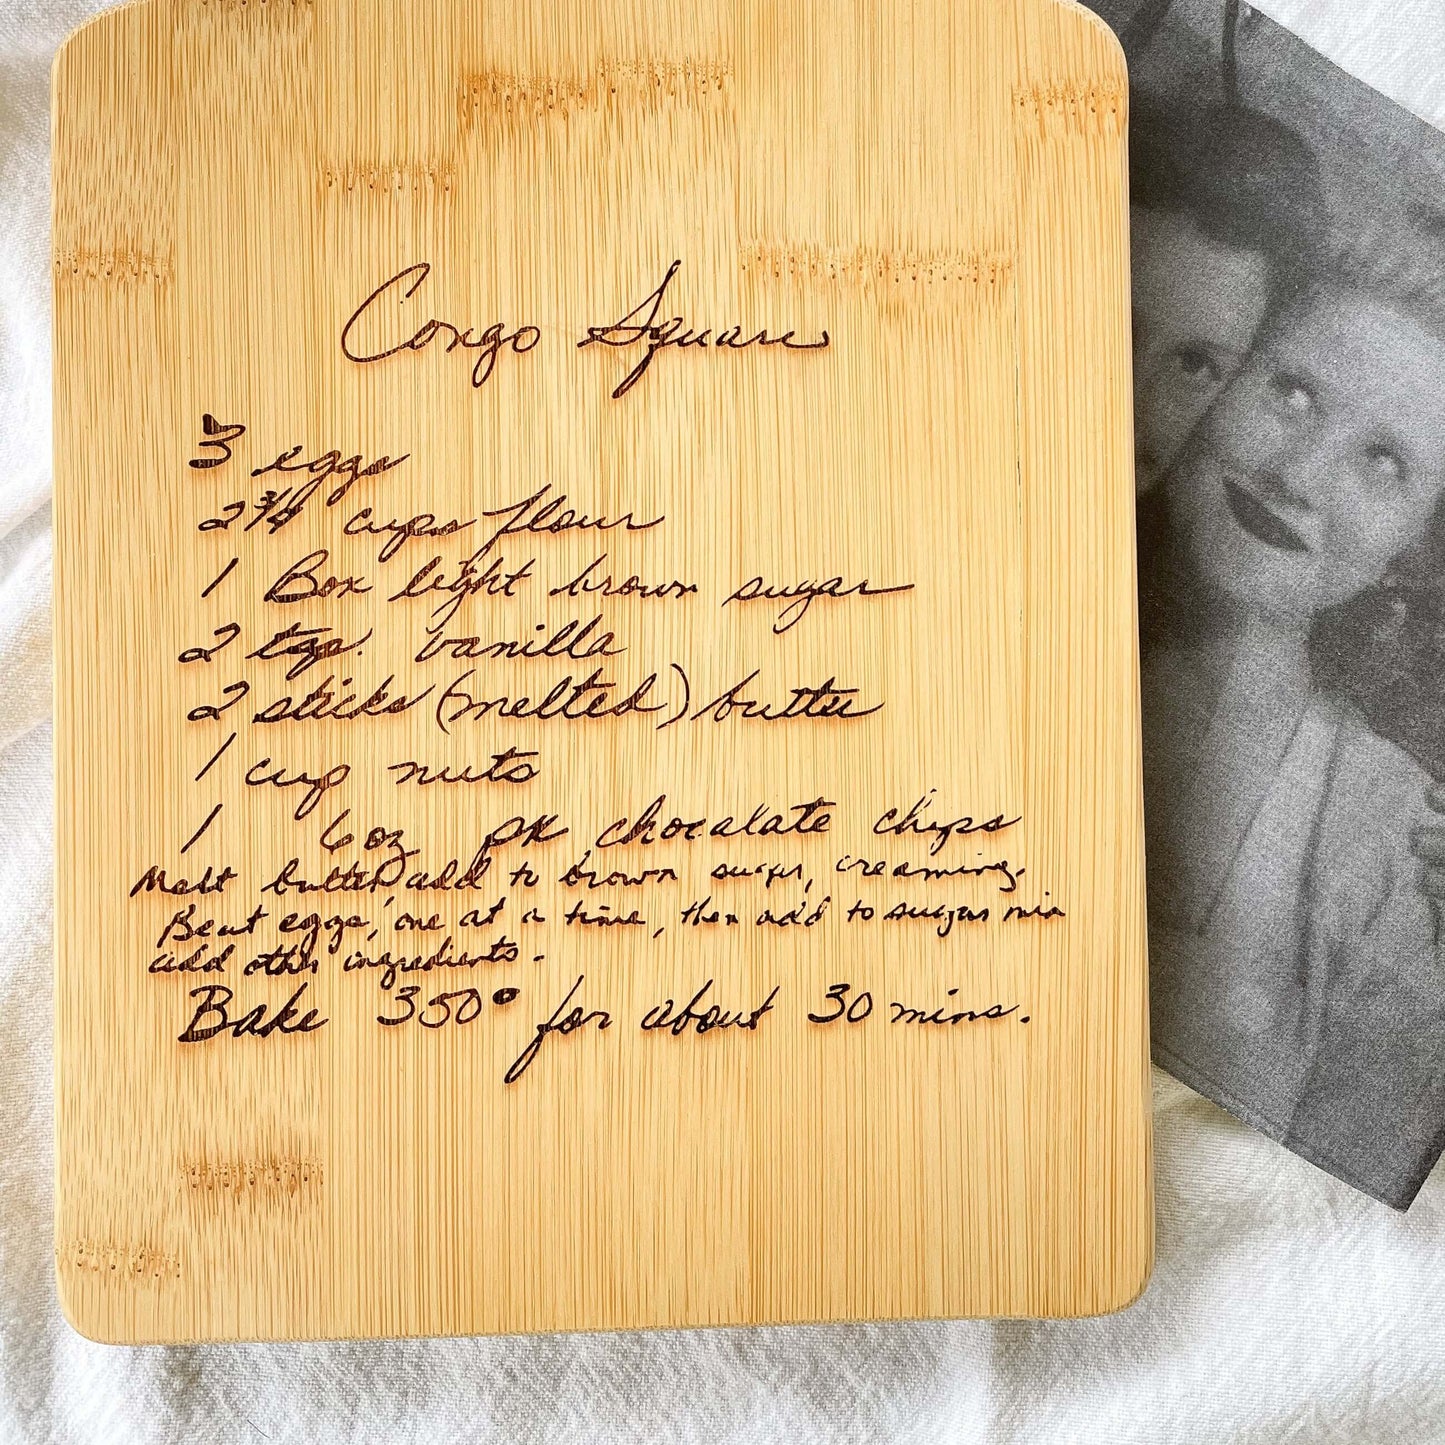 Congo Square
3 eggs
2 3/4 cups flour
1 Box light brown sugar
2 tsp. vanilla
2 sticks (melted) butter
1 cup nuts
1 6 oz pk chocalate chips
Melt butter, add to brown sugar, creaming.
Beat eggs, one at a time, then add to sugar mix
add other ingredients.
Bake 350° for about 30 mins.